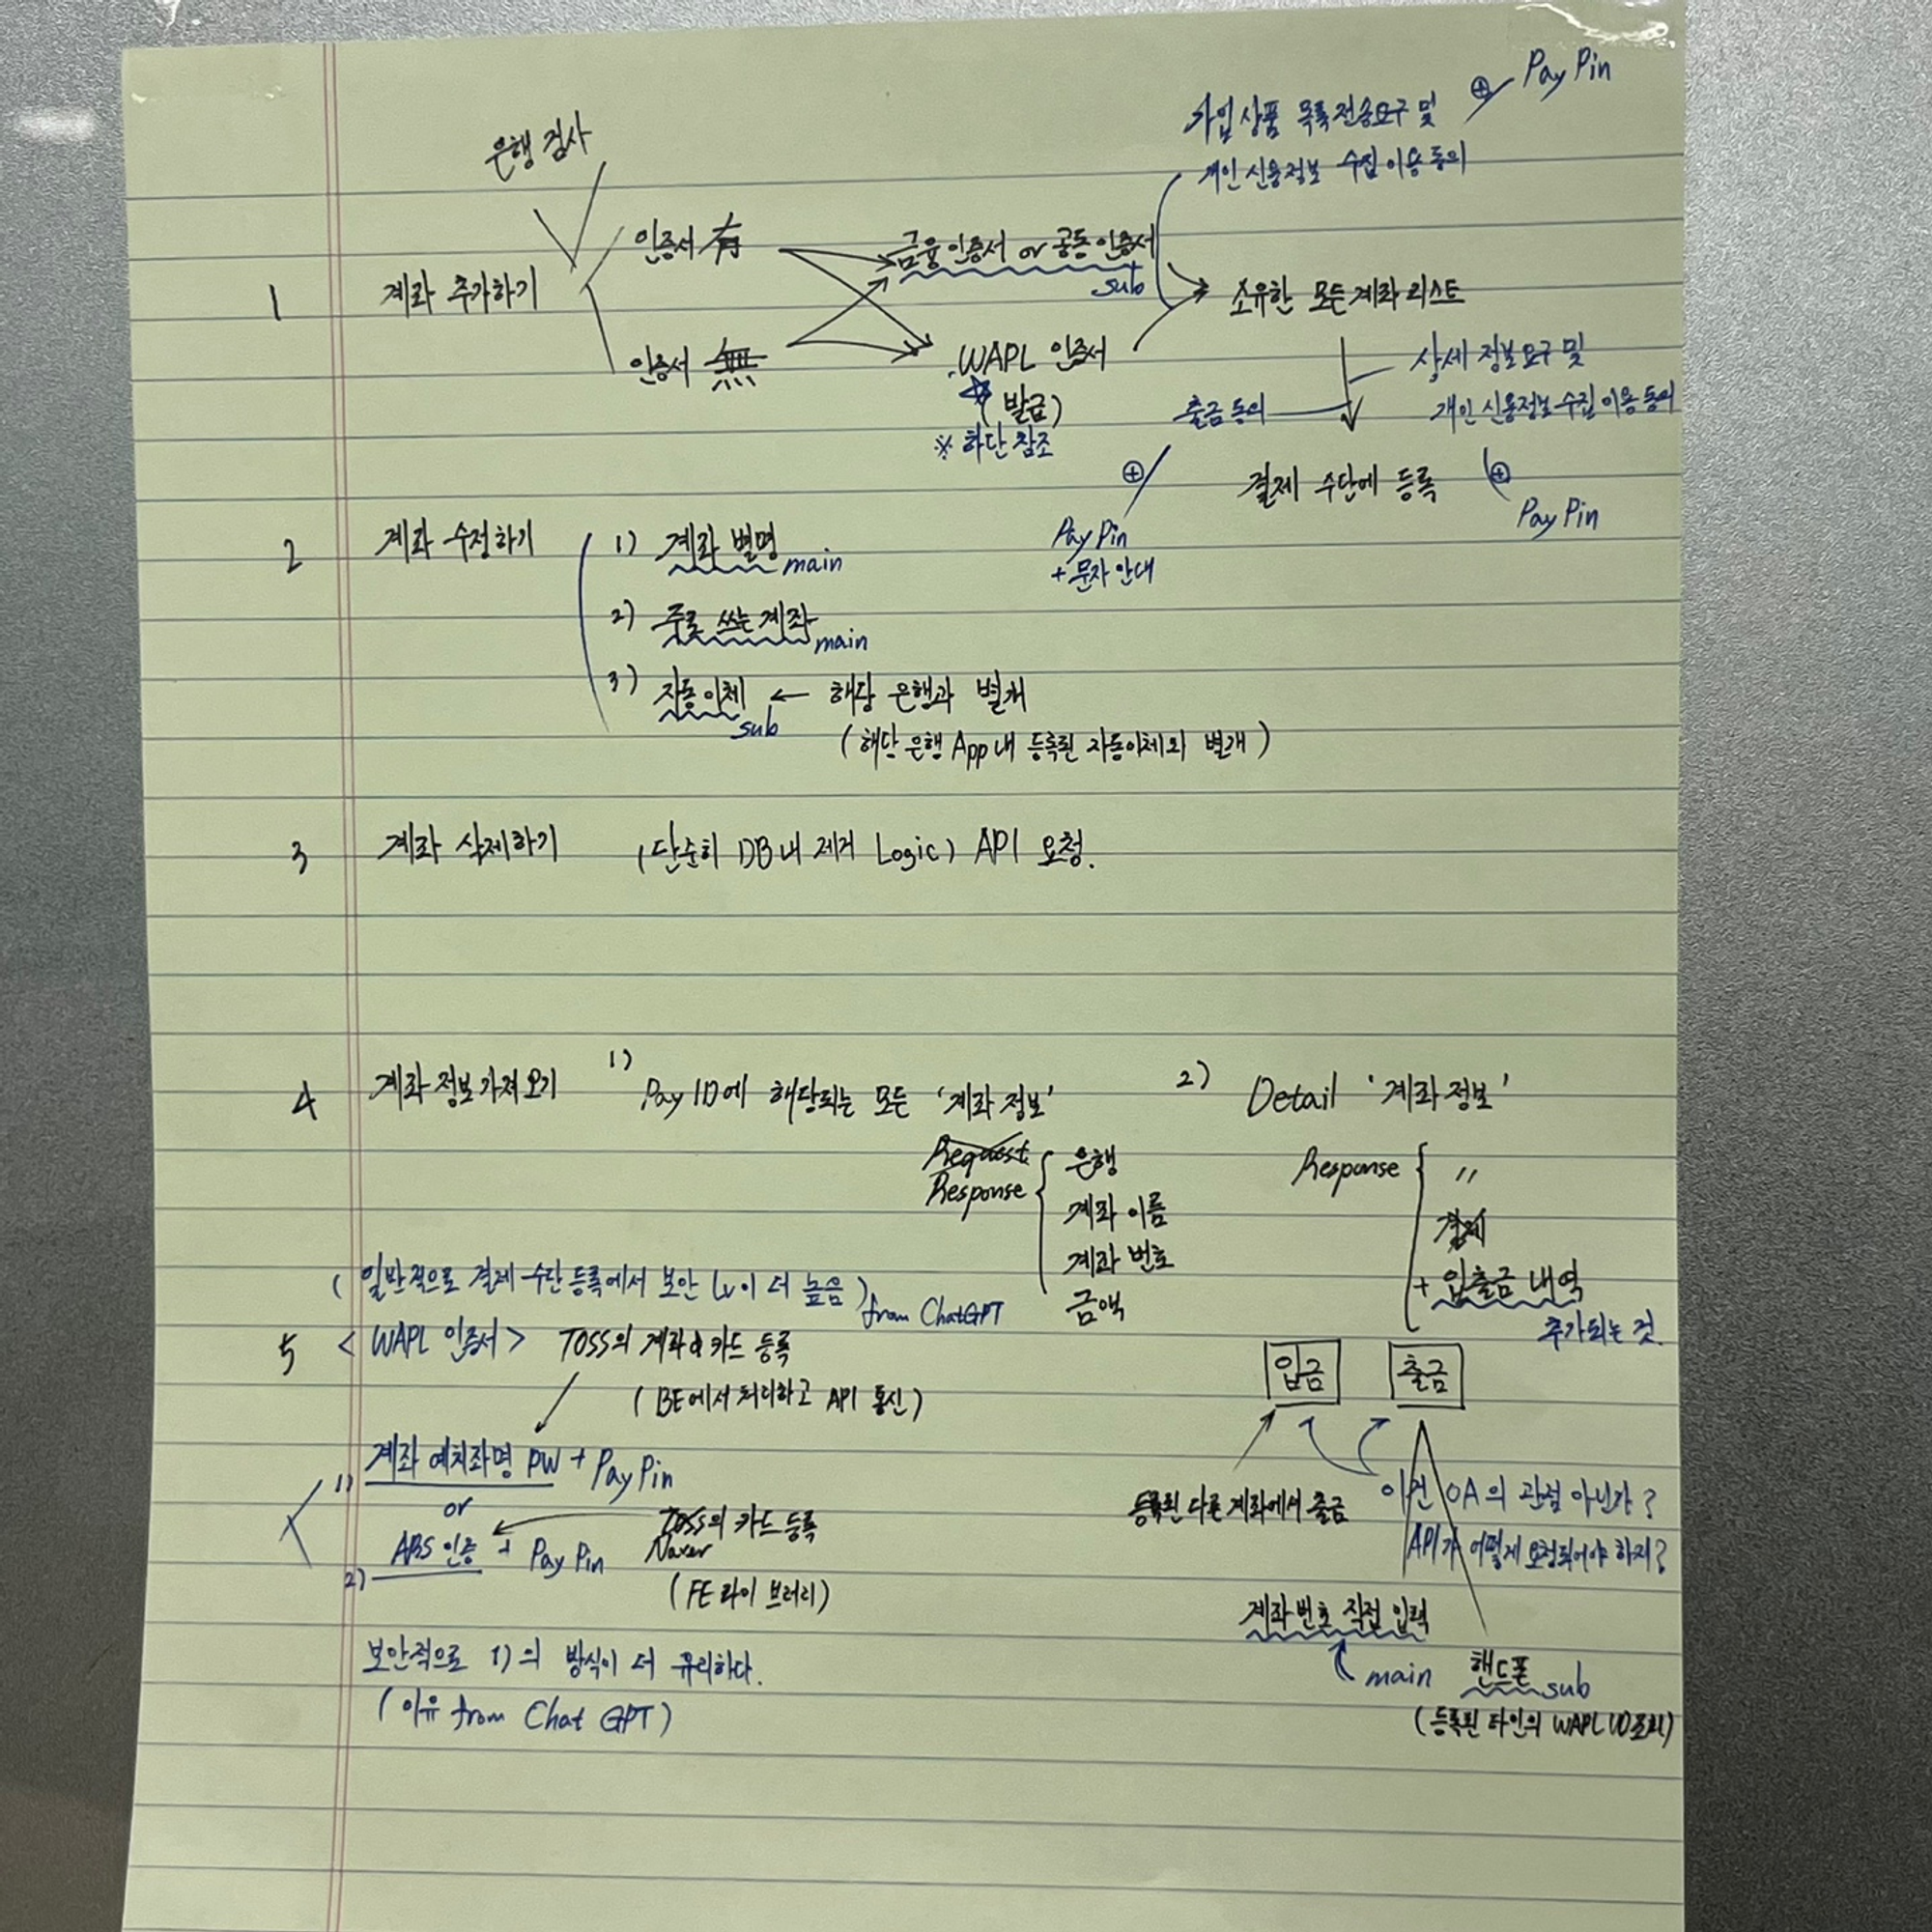 은행 점사
⊕ Pay Pin
가입 상품 목록 전송요구 및
개인 신용정보 수집 이용 동의
1 계좌 추가하기
인증서 有
인증서 無
금융인증서 or 공동인증서
sub
WAPL 인증서
(발급)
※ 하단 참조
소유한 모든 계좌 리스트
상세 정보 요구 및
개인 신용정보 수집 이용 동의
출금 동의
⊕
Pay Pin
+ 문자 안내
결제 수단에 등록
⊕
Pay Pin
2 계좌 수정하기
1) 계좌 별명 main
2) 주로 쓰는 계좌 main
3) 자동이체 sub ← 해당 은행과 별개
(해당 은행 App 내 등록된 자동이체와 별개)
3 계좌 삭제하기 (단순히 DB 내 제거 Logic) API 요청.
4 계좌 정보 가져오기
1) Pay ID에 해당되는 모든 '계좌 정보'
Request
Response
은행
계좌 이름
계좌 번호
금액
2) Detail '계좌 정보'
Response
〃
결제
+ 입출금 내역
추가되는 것.
입금 출금
등록된 다른 계좌에서 출금
이건 OA의 관점 아닌가?
API가 어떻게 요청되어야 하지?
계좌 번호 직접 입력
main
핸드폰 sub
(등록된 타인의 WAPL ID 조회)
(일반적으로 결제 수단 등록에서 보안 Lv이 더 높음) from ChatGPT
5 <WAPL 인증서> TOSS의 계좌 & 카드 등록
(BE에서 처리하고 API 통신)
1) 계좌 예치좌명 PW + Pay Pin
or
2) ARS 인증 + Pay Pin
TOSS의 카드 등록
Naver
(FE 라이브러리)
보안적으로 1)의 방식이 더 유리하다.
(이유 from Chat GPT)